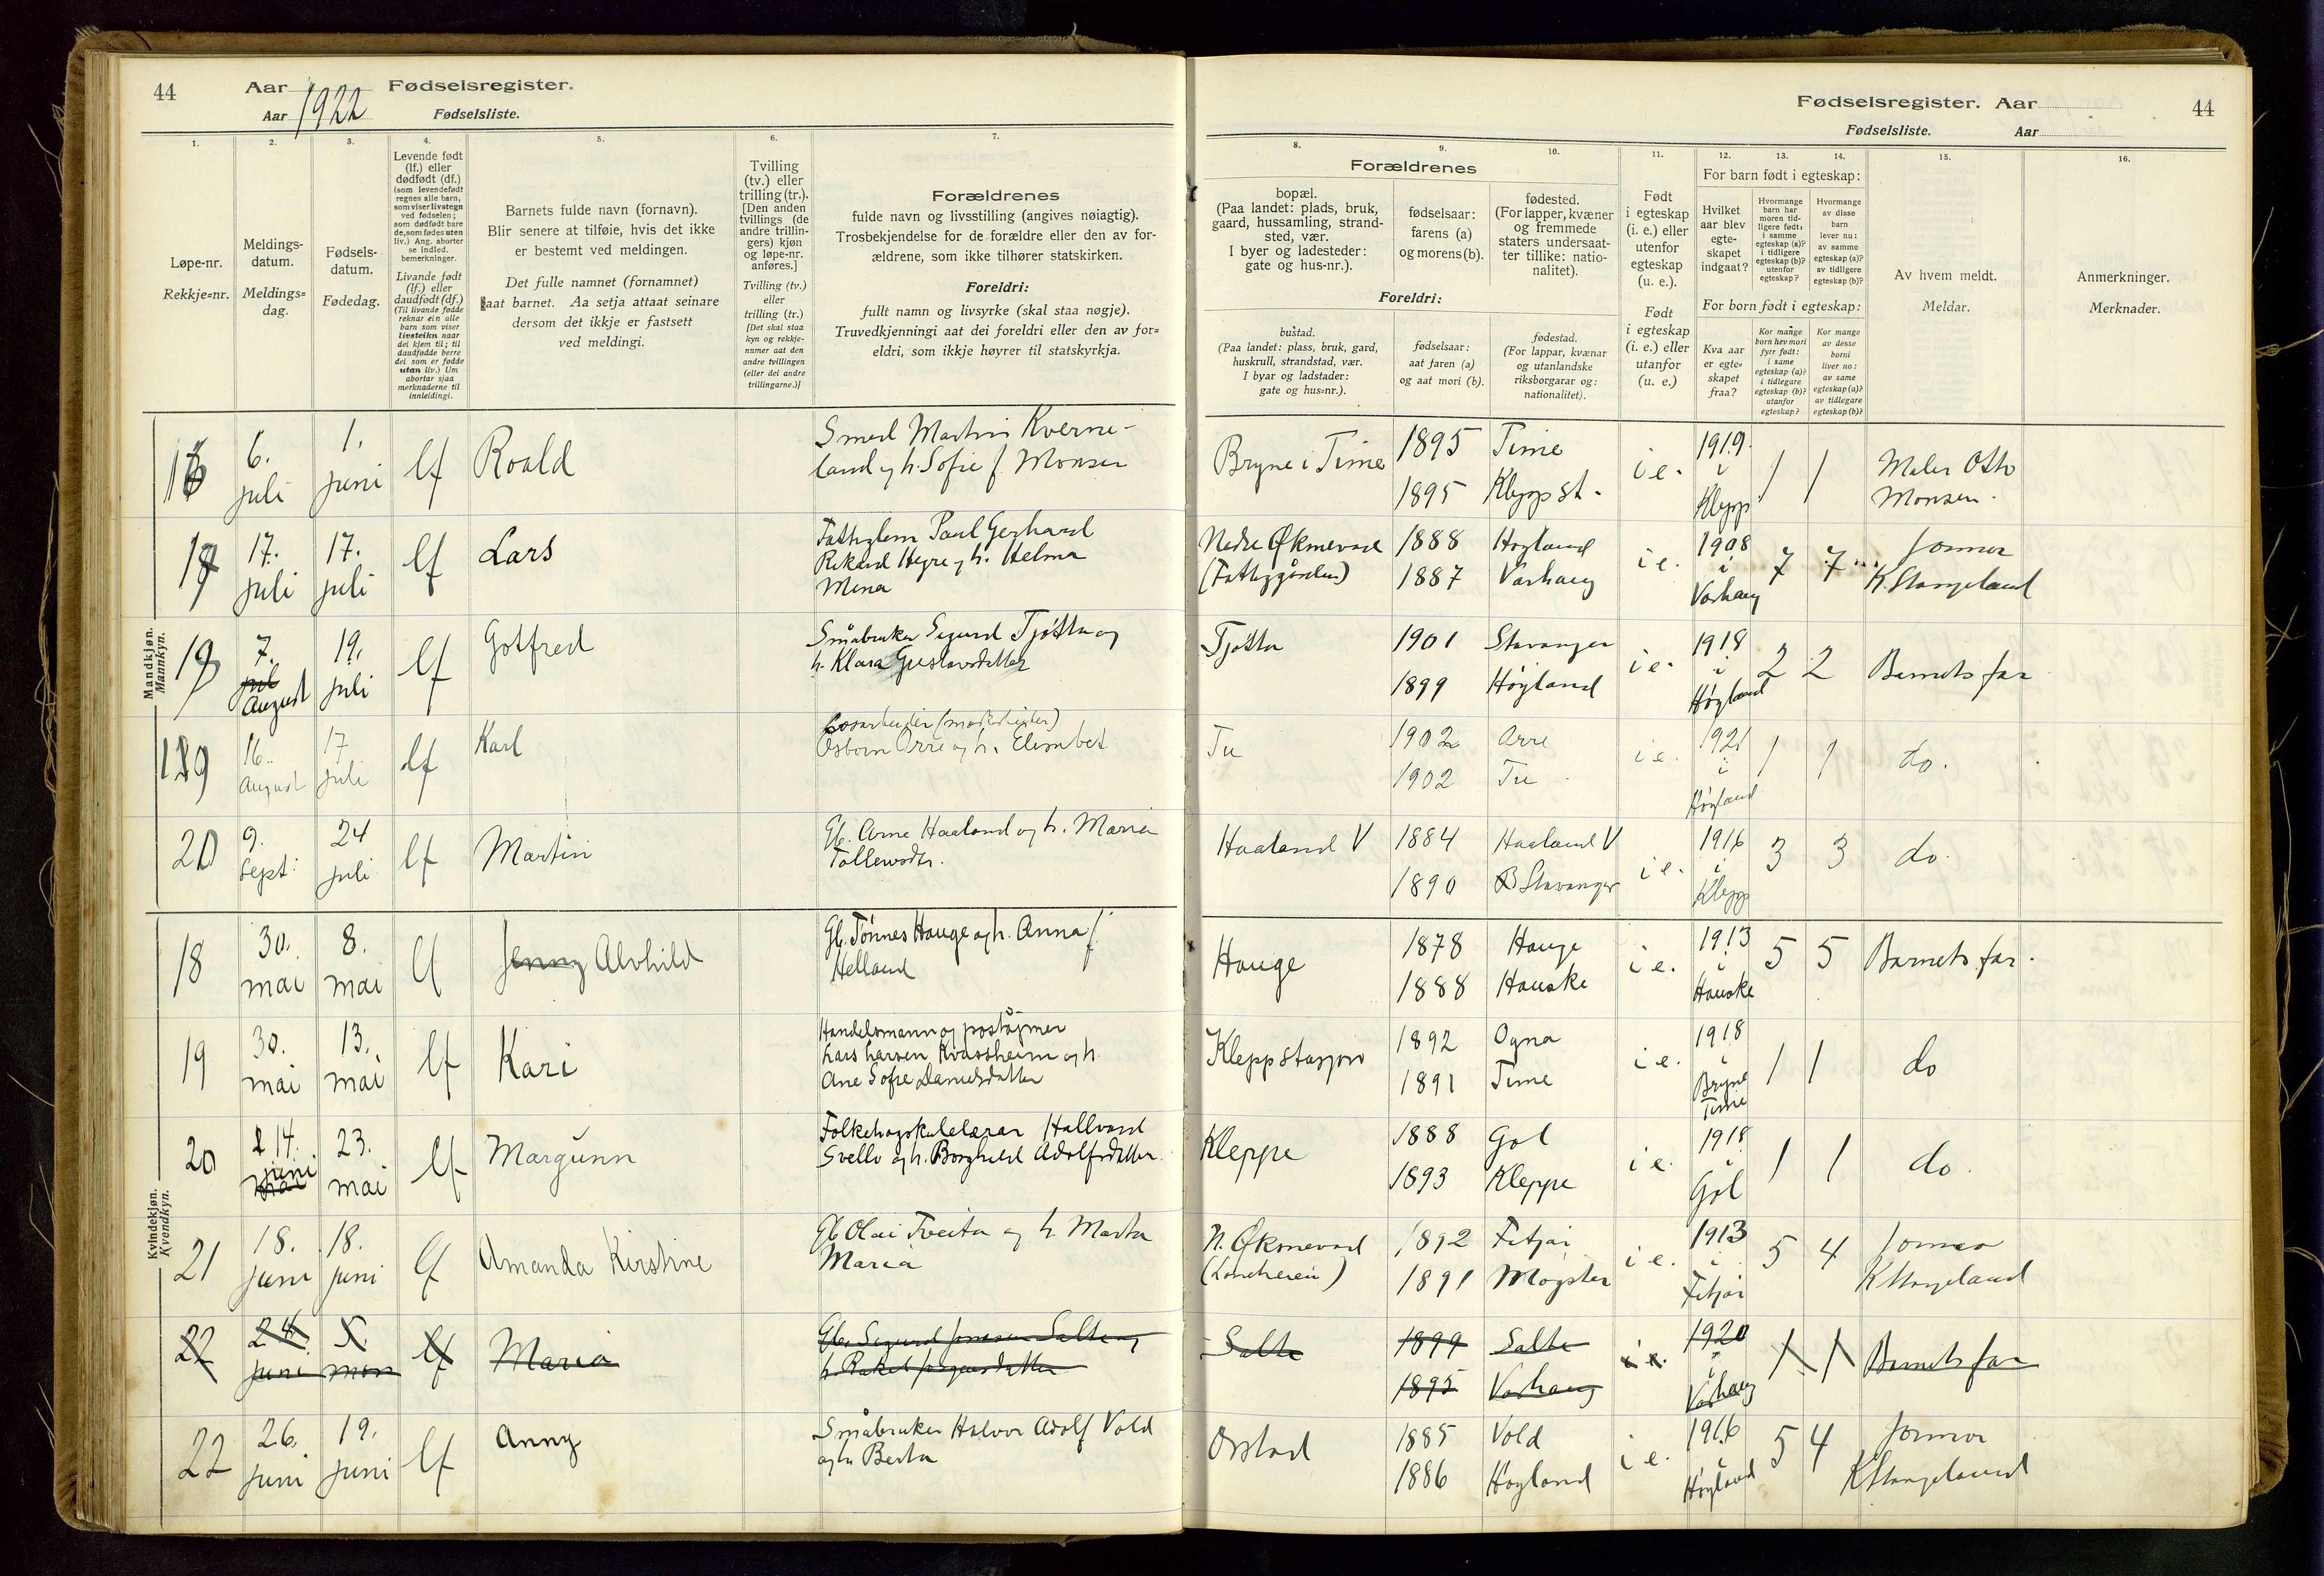 44 Aar 1922 Fødselsregister.
Aar Fødselsliste.
Fødselsregister. Aar 44
Fødselsliste. Aar
1. 2. 3. 4. 5. 6. 7. 8. 9. 10. 11. 12. 13. 14. 15. 16.
Løpe-nr.
Rekkje=nr.
Meldings-
datum.
Meldings=
dag.
Fødsels-
datum.
Fødedag.
Levende født
(lf.) eller
dødfødt (df.)
(som levendefødt
regnes alle barn,
som viser livstegn
ved fødselen;
som dødfødt bare
de, som fødes uten
liv.) Ang. aborter
se indled.
bemerkninger.
Livande født
(lf.) eller
daudfødt (df.)
(Til livande fødde
reknar ein alle
barn som viser
livsteikn naar
dei kjem til; til
daudfødde berre
dei som er fødde
utan liv.) Um
abortar sjaa
merknaderne til
innleidingi.
Barnets fulde navn (fornavn).
Blir senere at tilføie, hvis det ikke
er bestemt ved meldingen.
Det fulle namnet (fornamnet)
aat barnet. Aa setja attaat seinare
dersom det ikkje er fastsett
ved meldingi.
Tvilling
(tv.) eller
trilling (tr.).
[Den anden
tvillings (de
andre trillin-
gers) kjøn
og løpe-nr.
anføres.]
Tvilling (tv.)
eller
trilling (tr.)
[Det skal staa
kyn og rekkje-
numer aat den
andre tvillingen
(eller dei andre
trillingarne.)]
Forældrenes
fulde navn og livsstilling (angives nøiagtig).
Trosbekjendelse for de forældre eller den av for-
ældrene, som ikke tilhører statskirken.
Foreldri:
fullt namn og livsyrke (skal staa nøgje).
Truvedkjenningi aat dei foreldri eller den av for=
eldri, som ikkje høyrer til statskyrkja.
Forældrenes
bopæl.
(Paa landet: plads, bruk,
gaard, hussamling, strand-
sted, vær.
I byer og ladesteder:
gate og hus-nr.).
fødselsaar:
farens (a)
og morens (b).
fødested.
(For lapper, kvæner
og fremmede
staters undersaat-
ter tillike: natio-
nalitet).
Foreldri:
bustad.
(Paa landet: plass, bruk, gard,
huskrull, strandstad, vær.
I byar og ladstader:
gate og hus=nr.).
fødselsaar:
aat faren (a)
og aat mori (b).
fødestad.
(For lappar, kvænar
og utanlandske
riksborgarar og:
nationalitet).
Født
i egteskap
(i. e.) eller
utenfor
egteskap
(u. e.).
Født
i egteskap
(i. e.) eller
utanfor
(u. e.)
For barn født i egteskap:
Hvilket
aar blev
egte-
skapet
indgaat?
Hvormange
barn har
moren tid-
ligere født:
i samme
egteskap (a)?
i tidligere
egteskap (b)?
utenfor
egteskap?
Hvormange
av disse
barn
lever nu:
av samme
egteskap (a)?
av tidligere
egteskap (b)?
For born født i egteskap:
Kva aar
er egte=
skapet
fraa?
Kor mange
born hev mori
fyrr født:
i same
egteskap (a)?
i tidlegare
egteskap (b)?
utanfor
egteskap?
Kor mange
av desse
borni
liver no:
av same
egteskap (a)?
av tidlegare
egteskap (b)?
Av hvem meldt.
Meldar.
Anmerkninger.
Merknader.
Mandkjøn.
Mannkyn.
6. juli 1. juni lf Roald Smed Martin Kverne-
land og h. Sofie f. Monsen Bryne i Time 1895 Time 1895 Klepp st. i e. 1919 i Klepp 1 1 Maler Otto
Monsen.
17. juli 17. juli lf Lars Fattiglem Paul Gerhard
Rikard Hegre og h. Helma
Mina Nedre Øksnevad
(Fattiggården) 1888 Høyland 1887 Varhaug i e. 1908 i Varhaug 7 7 Jormor
K. Stangeland
19 7. juli August 19. juli lf Gotfred Småbruker Sigurd Tjøtta og
h. Klara Gustavsdatter Tjøtta 1901 Stavanger 1899 Høyland i e. 1918 i Høyland 2 2 Barnets far
19 16. August 17 juli lf Karl
Osborn Orre og h. Elisabet Tu 1902 Orre 1902 Tu i e. 1921 i Høyland 1 1 do.
20 9. Sept. 24 juli lf Martin Gb. Arne Haaland og h. Maria
Tollevsdtr. Haaland V 1884 Haaland V 1890 Stavanger i e. 1916 i Klepp 3 3 do.
Kvindekjøn.
Kvendkyn.
18 30. mai 8. mai lf Jenny Alvhild Gb. Tønnes Hauge og h. Anna f
Helland Hauge 1878 Hauge 1888 Hauske i e. 1913 i Hauske 5 5 Barnets far.
19 30. mai 13. mai lf Kari Handelsmann og poståpner
Lars Larsen Kvassheim og h.
Ane Sofie Danielsdatter Klepp stasjon 1892 Ogna 1891 Time i e. 1918 i Bryne Time 1 1 do
20 14. mai juni 23. mai lf Margunn Folkehøgskulelærar Hallvard
Svello og h. Borghild Adolfsdatter Kleppe 1888 Gol 1893 Kleppe i e. 1918 i Gol 1 1 do.
21 18. juni 18. juni lf Amanda Kirstine Gb Olai Tveita og h Marta
Maria N. Øksnevad 1892 Fitjar 1891 Møgster i e. 1913 i Fitjar 5 4 Jormor
K Stangeland
22 24. juni 5. lf Maria Gb. Sigurd Jonassen Salte og
h. Rakel Salte 1899 Salte 1895 Varhaug i e. 1920 i Varhaug 1 1 Barnets far
22 26. juni 19. juni lf Anny Småbruker Halvor Adolf Vold
og h Berta Orstad 1885 Vold 1886 Høyland i e. 1916 i Høyland 5 4 Jormor
K Stangeland